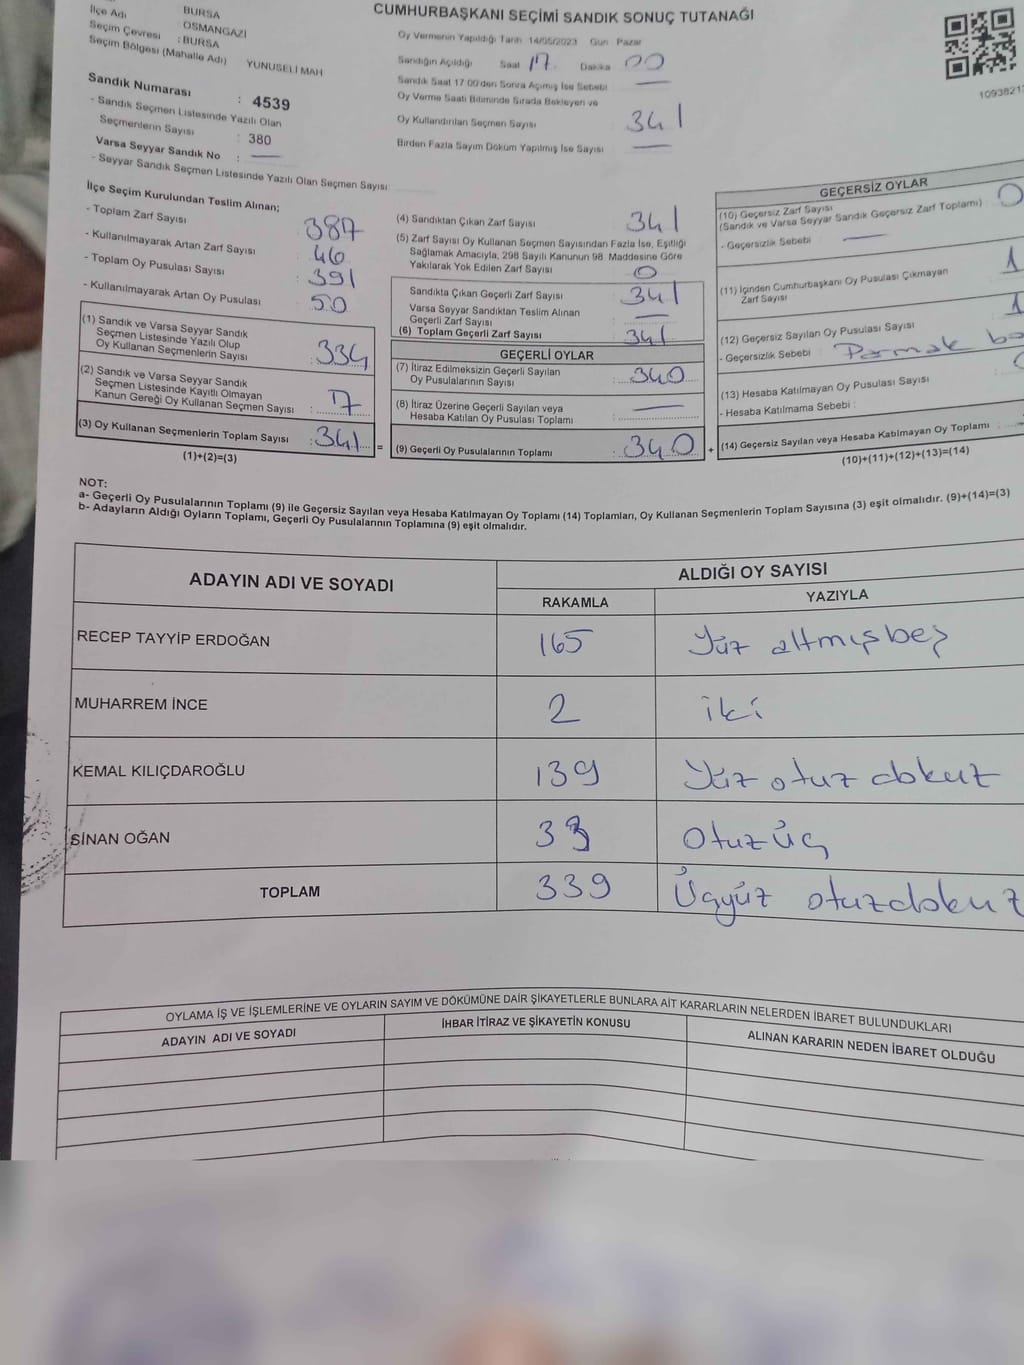 CUMHURBAŞKANI SEÇİMİ SANDIK SONUÇ TUTANAĞI
İlçe Adı
BURSA
OSMANGAZİ
Seçim Çevresi : BURSA
Seçim Bölgesi (Mahalle Adı) YUNUSELİ MAH
Sandık Numarası : 4539
- Sandık Seçmen Listesinde Yazılı Olan
Seçmenlerin Sayısı : 380
Varsa Seyyar Sandık No : —
- Seyyar Sandık Seçmen Listesinde Yazılı Olan Seçmen Sayısı:
Oy Vermenin Yapıldığı Tarih 14/05/2023 Gün Pazar
Sandığın Açıldığı Saat 17 Dakika 00
Sandık Saat 17 00'den Sonra Açımış İse Sebebi —
Oy Verme Saati Bitiminde Sırada Bekleyen ve
Oy Kullandırılan Seçmen Sayısı 341
Birden Fazla Sayım Döküm Yapılmış İse Sayısı —
1093821
İlçe Seçim Kurulundan Teslim Alınan;
- Toplam Zarf Sayısı 387
- Kullanılmayarak Artan Zarf Sayısı 46
- Toplam Oy Pusulası Sayısı 391
- Kullanılmayarak Artan Oy Pusulası 50
(1) Sandık ve Varsa Seyyar Sandık
Seçmen Listesinde Yazılı Olup
Oy Kullanan Seçmenlerin Sayısı : 334
(2) Sandık ve Varsa Seyyar Sandık
Seçmen Listesinde Kayıtlı Olmayan
Kanun Gereği Oy Kullanan Seçmen Sayısı : 7
(3) Oy Kullanan Seçmenlerin Toplam Sayısı : 341 =
(1)+(2)=(3)
(4) Sandıktan Çıkan Zarf Sayısı 341
(5) Zarf Sayısı Oy Kullanan Seçmen Sayısından Fazla İse, Eşitliği
Sağlamak Amacıyla, 298 Sayılı Kanunun 98. Maddesine Göre
Yakılarak Yok Edilen Zarf Sayısı 0
Sandıkta Çıkan Geçerli Zarf Sayısı 341
Varsa Seyyar Sandıktan Teslim Alınan
Geçerli Zarf Sayısı —
(6) Toplam Geçerli Zarf Sayısı 341
GEÇERLİ OYLAR
(7) İtiraz Edilmeksizin Geçerli Sayılan
Oy Pusulalarının Sayısı : 340
(8) İtiraz Üzerine Geçerli Sayılan veya
Hesaba Katılan Oy Pusulası Toplamı : —
(9) Geçerli Oy Pusulalarının Toplamı : 340 +
GEÇERSİZ OYLAR
(10) Geçersiz Zarf Sayısı 0
(Sandık ve Varsa Seyyar Sandık Geçersiz Zarf Toplamı)
- Geçersizlik Sebebi —
(11) İçinden Cumhurbaşkanı Oy Pusulası Çıkmayan
Zarf Sayısı 1
(12) Geçersiz Sayılan Oy Pusulası Sayısı 1
- Geçersizlik Sebebi : Parmak
(13) Hesaba Katılmayan Oy Pusulası Sayısı
- Hesaba Katılmama Sebebi :
(14) Geçersiz Sayılan veya Hesaba Katılmayan Oy Toplamı :
(10)+(11)+(12)+(13)=(14)
NOT:
a- Geçerli Oy Pusulalarının Toplamı (9) ile Geçersiz Sayılan veya Hesaba Katılmayan Oy Toplamı (14) Toplamları, Oy Kullanan Seçmenlerin Toplam Sayısına (3) eşit olmalıdır. (9)+(14)=(3)
b- Adayların Aldığı Oyların Toplamı, Geçerli Oy Pusulalarının Toplamına (9) eşit olmalıdır.
ADAYIN ADI VE SOYADI ALDIĞI OY SAYISI
RAKAMLA YAZIYLA
RECEP TAYYİP ERDOĞAN 165 Yüz altmışbeş
MUHARREM İNCE 2 iki
KEMAL KILIÇDAROĞLU 139 Yüz otuz dokuz
SİNAN OĞAN 33 Otuzüç
TOPLAM 339 Üçyüz otuzdokuz
OYLAMA İŞ VE İŞLEMLERİNE VE OYLARIN SAYIM VE DÖKÜMÜNE DAİR ŞİKAYETLERLE BUNLARA AİT KARARLARIN NELERDEN İBARET BULUNDUKLARI
ADAYIN ADI VE SOYADI İHBAR İTİRAZ VE ŞİKAYETİN KONUSU ALINAN KARARIN NEDEN İBARET OLDUĞU